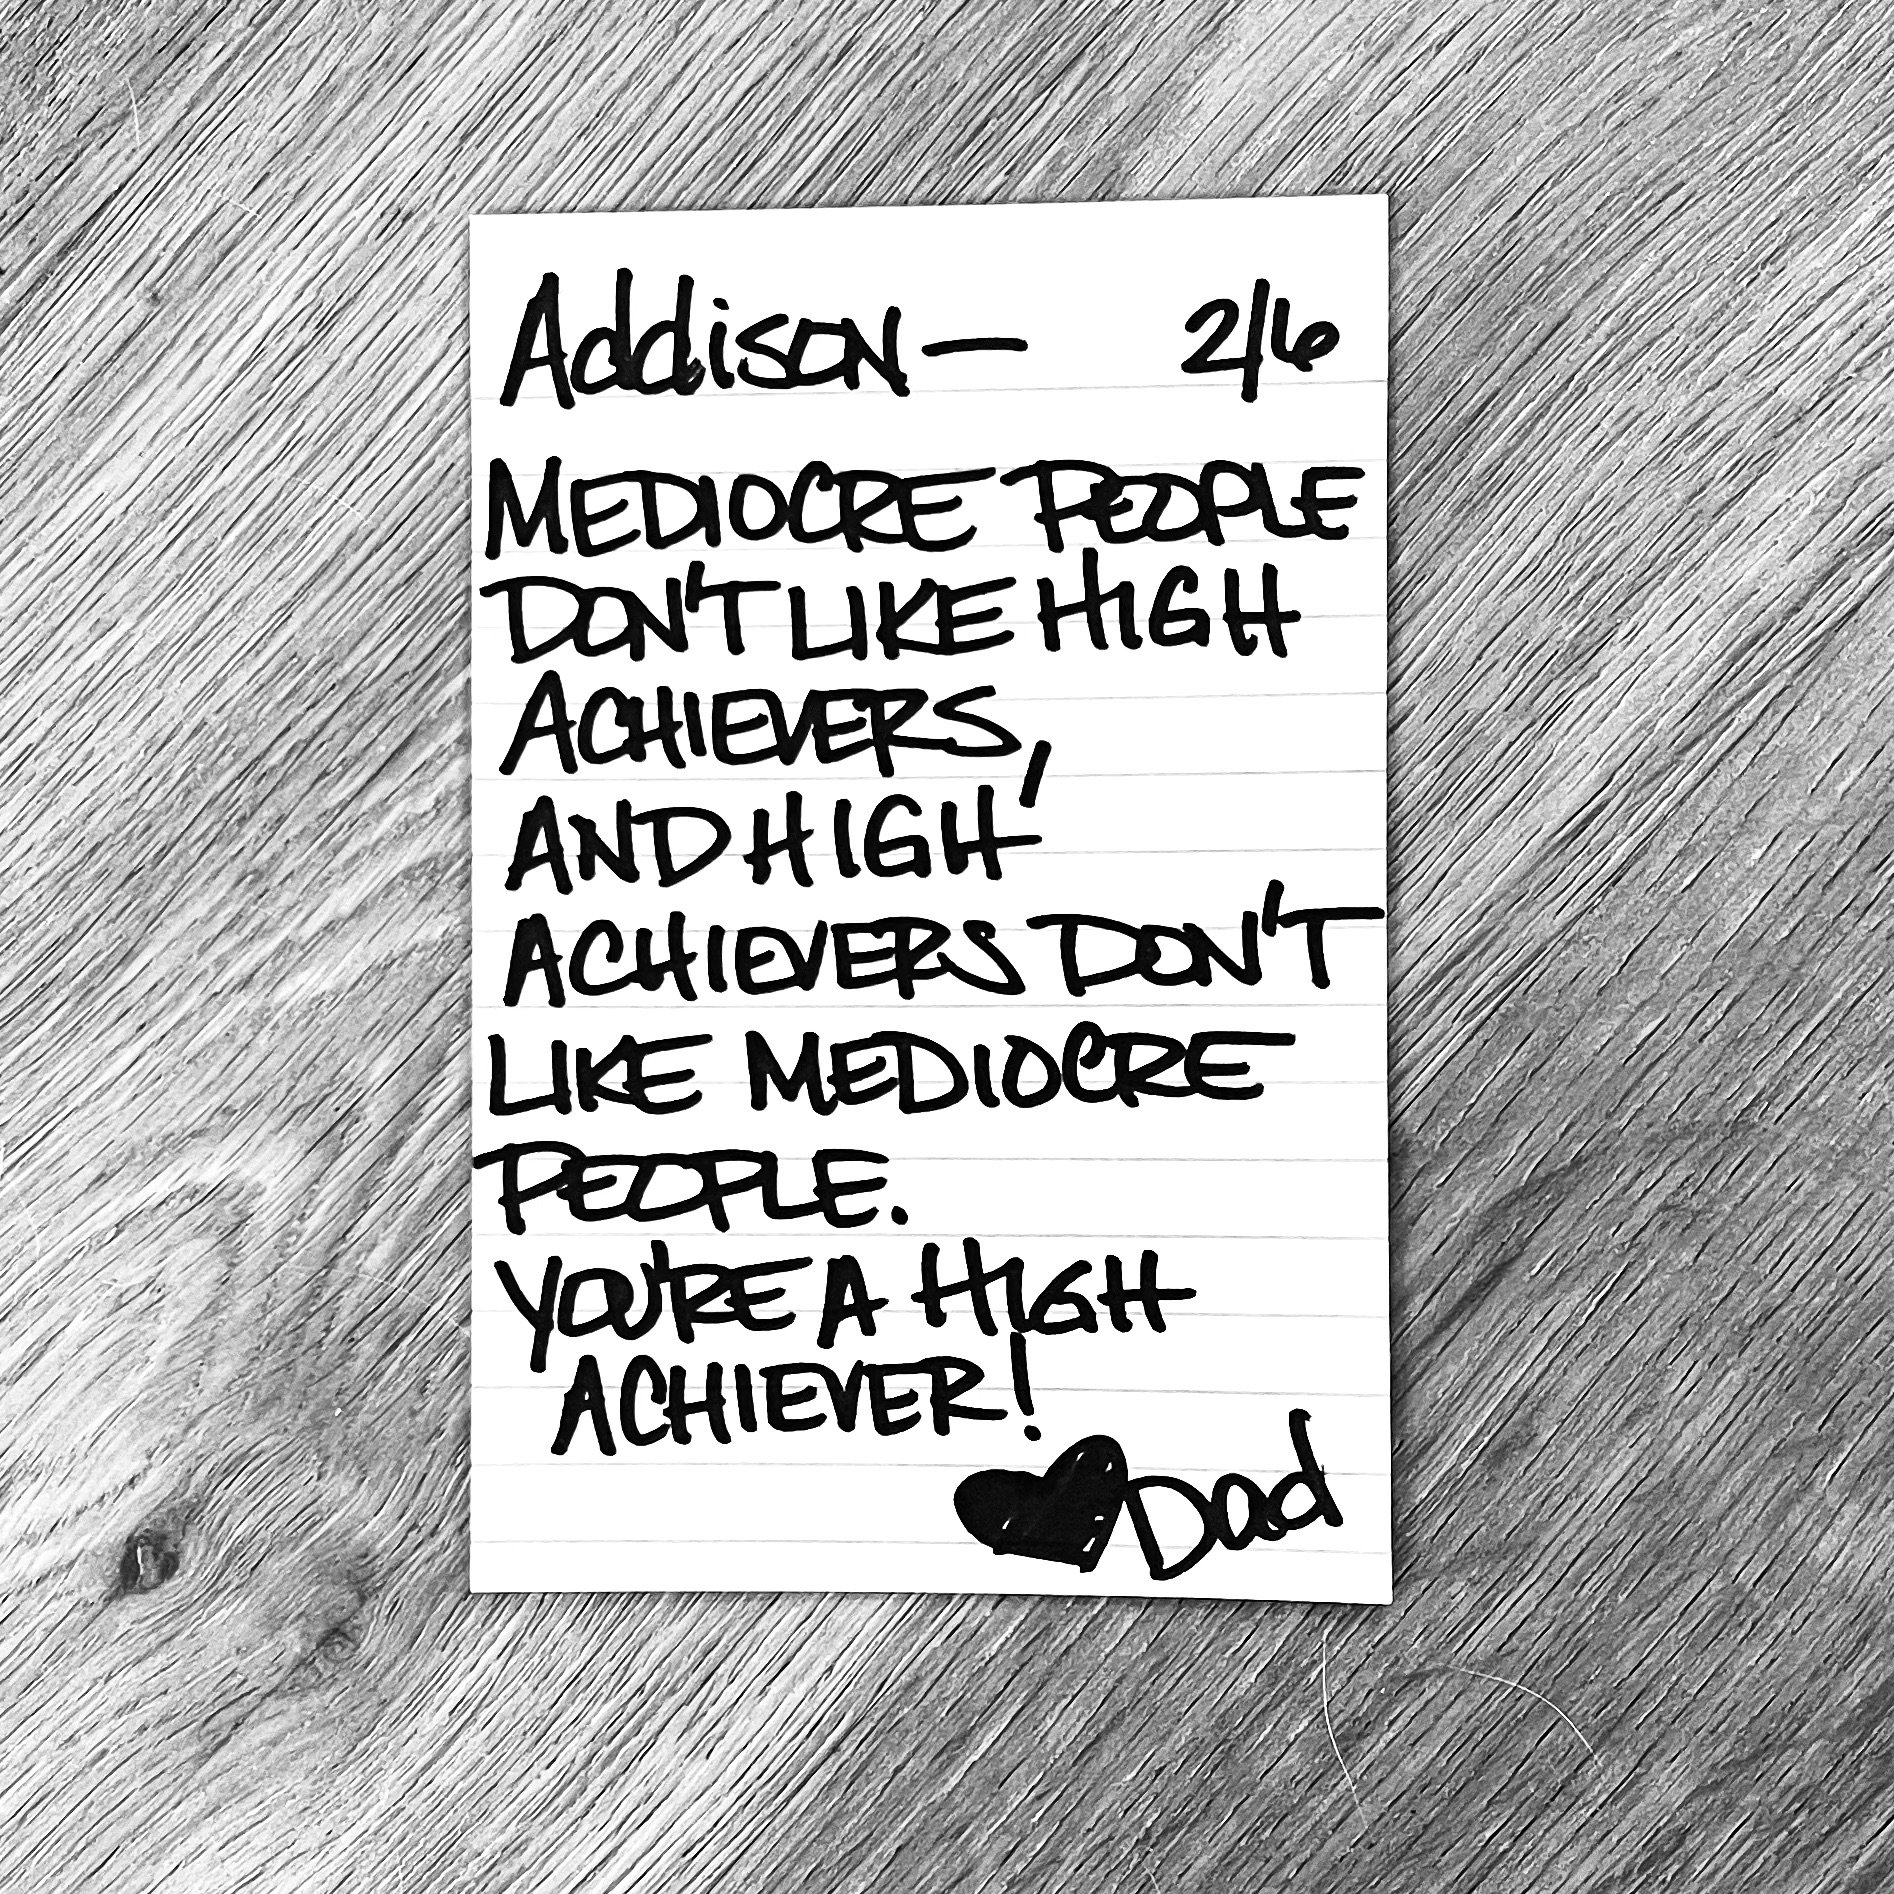 Addison — 2/6
MEDIOCRE PEOPLE
DON'T LIKE HIGH
ACHIEVERS,
AND HIGH
ACHIEVERS DON'T
LIKE MEDIOCRE
PEOPLE.
YOU'RE A HIGH
ACHIEVER!
♥Dad